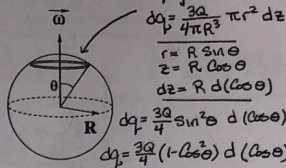 ω
dq = 3Q/4πR³ πr² dz
r = R sin θ
z = R Cos θ
dz = R d(Cos θ)
θ
R
dq = 3Q/4 sin²θ d(Cos θ)
dq = 3Q/4 (1-Cos²θ) d(Cos θ)